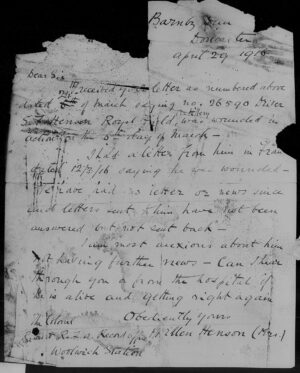 Barnby Dun
Doncaster
April 29 1918
Dear Sir
received your letter as numbered above
dated of march saying no. 96590 Driver
Henson Royal Field Artillery was wounded in
action on the 5th day of march -
I had a letter from him in
dated 12/3/16 saying he was wounded -
have had no letter or news since
and letters sent to him have not been
answered but not sent back -
I am most anxious about him
not having further news - Can I hear
through you or from the hospital if
he is alive and getting right again
Obediently Yours
The Colonel Ellen Henson (Mrs)
Record Office
Woolwich